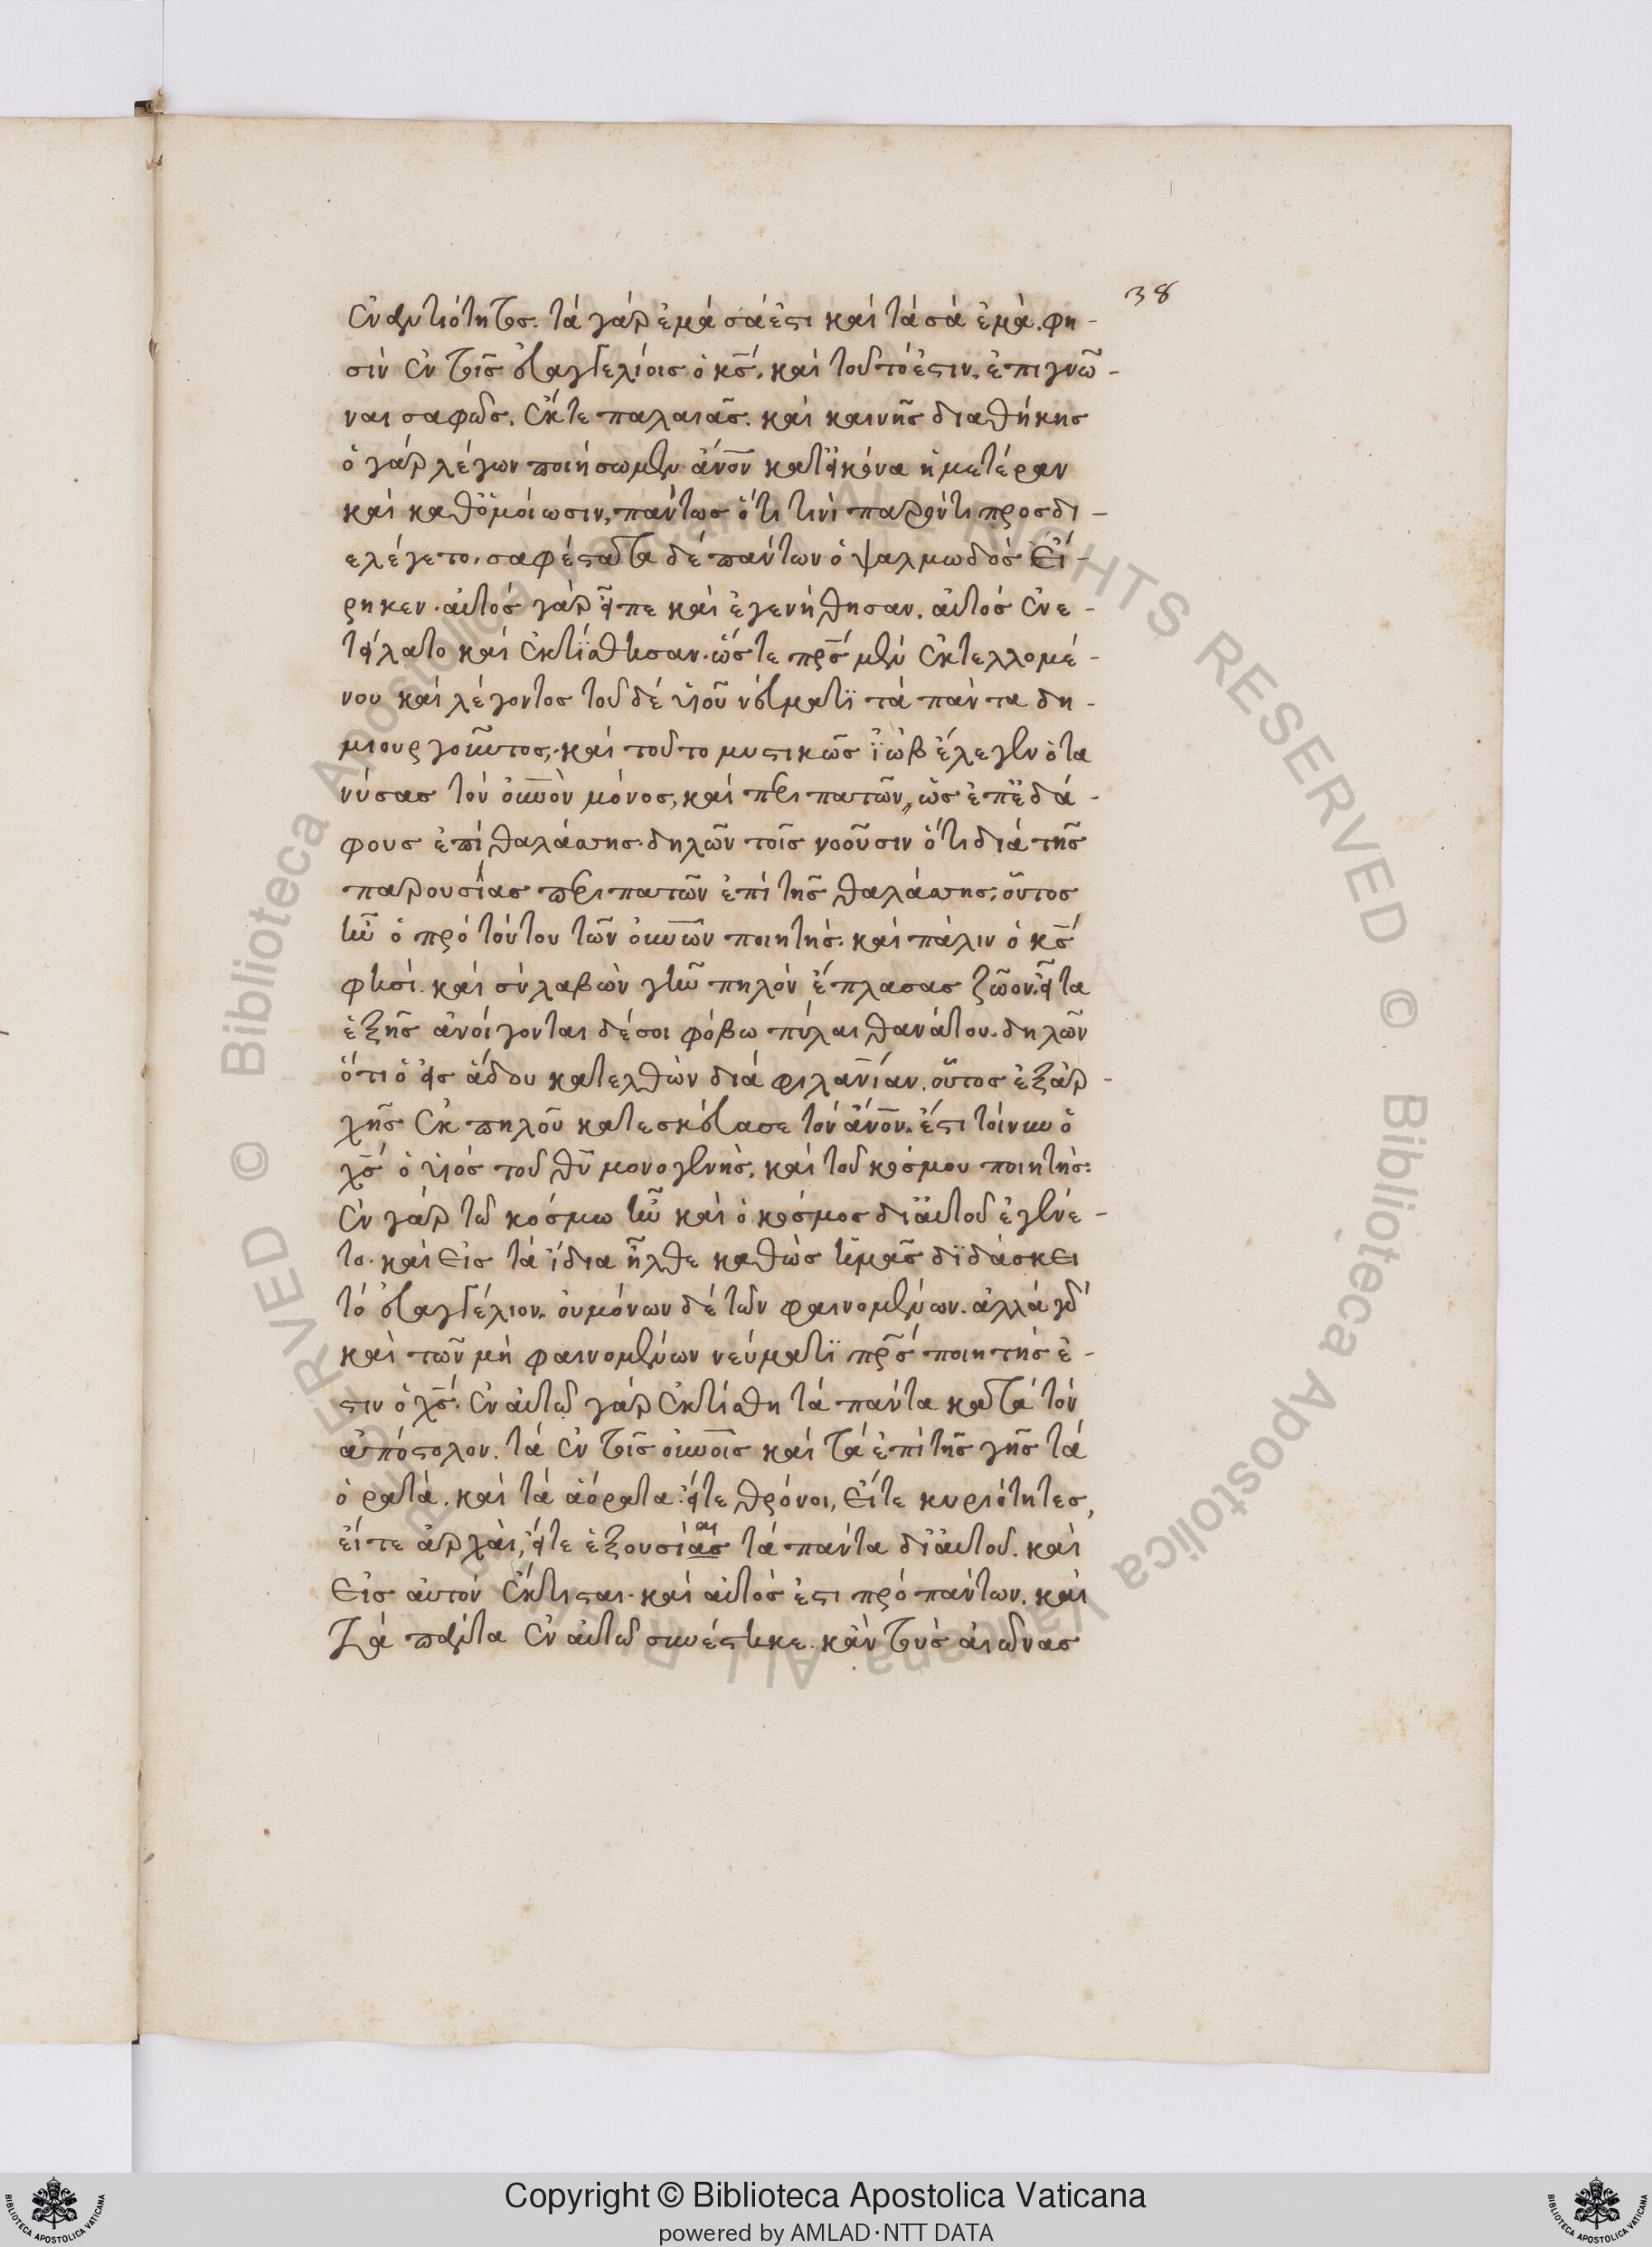 38
ἐναντιότητος. τὰ γὰρ ἐμὰ σά ἐστι καὶ τὰ σὰ ἐμά. φη-
σὶν ἐν τοῖς εὐαγγελίοις ὁ κς̅, καὶ τοῦτό ἐστιν, ἐπιγνῶ-
ναι σαφῶς. ἔκτε παλαιᾶς. καὶ καινῆς διαθήκης
ὁ γὰρ λέγων ποιήσωμεν ἄνον̅ κατ' εἰκόνα ἡμετέραν
καὶ καθ' ὁμοίωσιν, πάντως ὅτι τινὶ παρόντι προσδι-
ελέγετο. σαφέστατα δὲ πάντων ὁ ψαλμωδὸς εἴ-
ρηκεν. αὐτὸς γὰρ εἶπε καὶ ἐγενήθησαν. αὐτὸς ἐνε-
τείλατο καὶ ἐκτίσθησαν. ὥστε πρ̅ς μὲν ἐκτελλομέ-
νου καὶ λέγοντος τοῦ δὲ υἱοῦ νεύματι τὰ πάντα δη-
μιουργοῦντος. καὶ τοῦτο μυστικῶς ἰὼβ ἔλεγεν ὁ τα
νύσας τὸν οὐνον̅ μόνος, καὶ περιπατῶν, ὡς ἐπ' ἐδά-
φους ἐπὶ θαλάσσης. δηλῶν τοῖς νοοῦσιν ὅτι διὰ τῆς
παρουσίας περιπατῶν ἐπὶ τῆς θαλάσσης, οὗτος
ἦν ὁ πρὸ τούτου τῶν οὐνων̅ ποιητής. καὶ πάλιν ὁ κς̅
φησί. καὶ σὺ λαβὼν γῆν πηλὸν ἔπλασας ζῶον. εἶτα
ἑξῆς ἀνοίγονται δέ σοι φόβω πύλαι θανάτου. δηλῶν
ὅτι ὁ εἰς ἅδου κατελθὼν διὰ φιλανίαν̅. οὗτος ἐξ ἀρ-
χῆς ἐκ πηλοῦ κατεσκεύασε τὸν ἄνον̅. ἔστι τοίνυν ὁ
χς̅ ὁ υἱὸς τοῦ θυ̅ μονογενὴς, καὶ τοῦ κόσμου ποιητής:
ἐν γὰρ τῶ κόσμω ἦν καὶ ὁ κόσμος δι' αὐτοῦ ἐγένε-
το. καὶ εἰς τὰ ἴδια ἦλθε καθὼς ἡμᾶς διδάσκει
τὸ εὐαγγέλιον. οὐ μόνων δὲ τῶν φαινομένων. ἀλλά γε
καὶ τῶν μὴ φαινομένων νεύματι πρ̅ς ποιητής ἐ-
στιν ὁ χς̅. ἐν αὐτῶ γὰρ ἐκτίσθη τὰ πάντα κατὰ τὸν
ἀπόστολον. τὰ ἐν τοῖς οὐνοις̅ καὶ τὰ ἐπὶ τῆς γῆς τὰ
ὁρατά. καὶ τὰ ἀόρατα. εἴτε θρόνοι, εἴτε κυριότητες,
εἴτε ἀρχαὶ, εἴτε ἐξουσίας αι τὰ πάντα δι' αὐτοῦ. καὶ
εἰς αὐτὸν ἔκτισται. καὶ αὐτός ἐστι πρὸ πάντων. καὶ
τὰ πάντα ἐν αὐτῶ συνέστηκε. κἂν τοὺς αἰῶνας
Copyright © Biblioteca Apostolica Vaticana
powered by AMLAD·NTT DATA